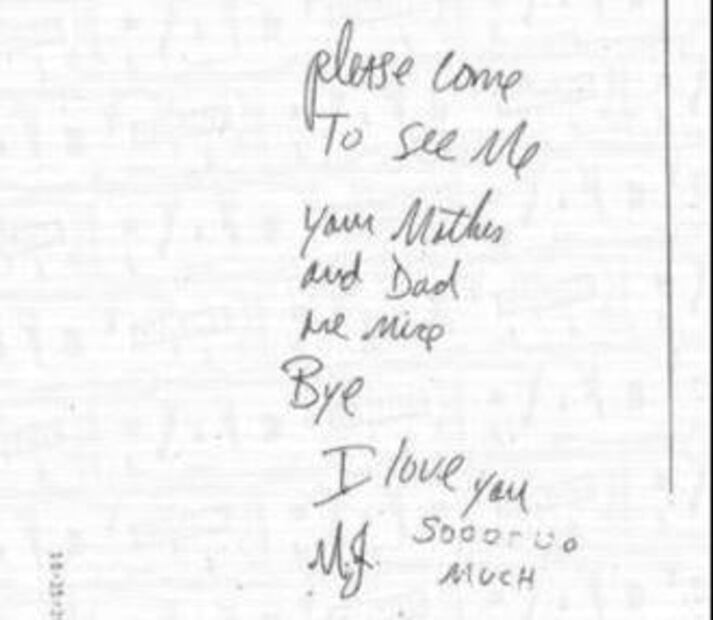 please come
To see Me
your Mother
and Dad
are nice
Bye
I love you
M.J.
MUCH